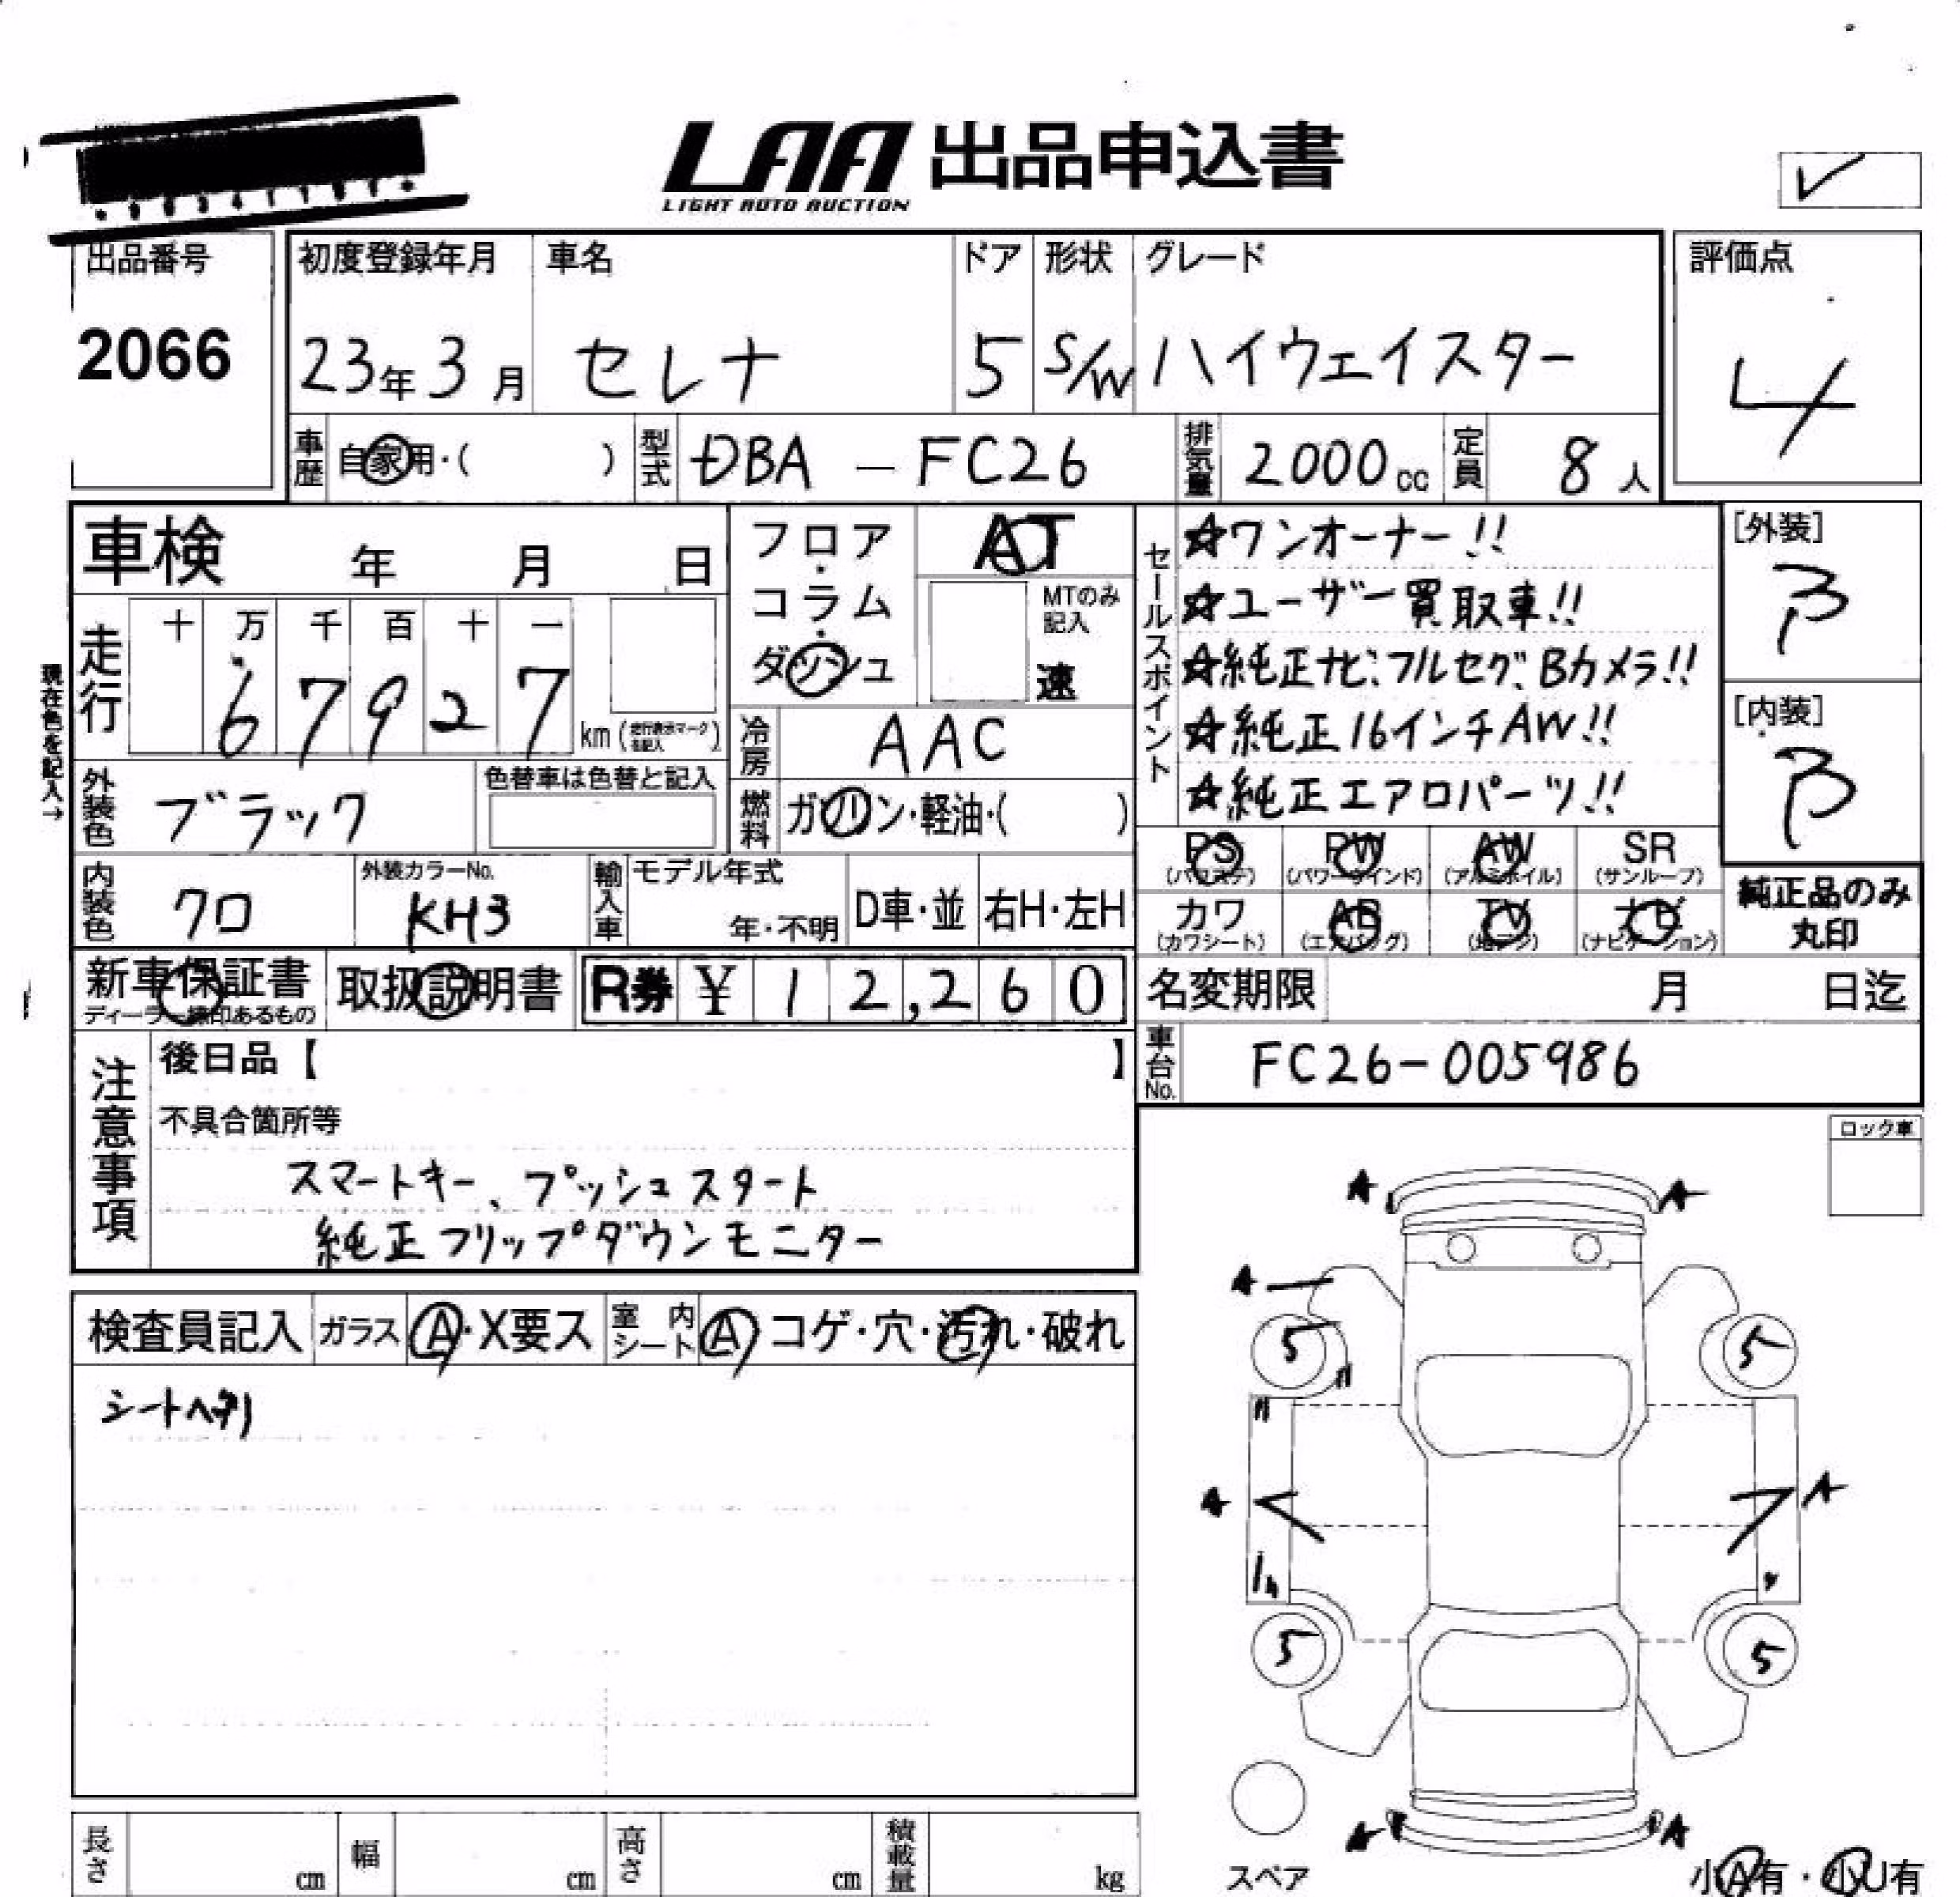 LAA 出品申込書
LIGHT AUTO AUCTION
出品番号
2066
初度登録年月
23年3月
車名
セレナ
ドア
5
形状
S/W
グレード
ハイウェイスター
評価点
4
車歴 自家用・( )
型式 DBA - FC26
排気量 2000cc
定員 8人
車検 年 月 日
フロア・コラム・ダッシュ
AT
MTのみ記入
速
走行
十 万 千 百 十 一
6 7 9 2 7 km (走行表示マークを記入)
現在色を記入→
冷房 AAC
外装色 ブラック
色替車は色替と記入
燃料 ガソリン・軽油・( )
セールスポイント
☆ワンオーナー!!
☆ユーザー買取車!!
☆純正ナビ、フルセグ、Bカメラ!!
☆純正16インチAW!!
☆純正エアロパーツ!!
[外装]
B
[内装]
B
PS (パワステ)
PW (パワーウインド)
AW (アルミホイル)
SR (サンルーフ)
カワ (カワシート)
AB (エアバッグ)
TV (地デジ)
ナビ (ナビゲーション)
純正品のみ丸印
内装色 クロ
外装カラーNo. KH3
輸入車
モデル年式
年・不明
D車・並
右H・左H
新車保証書
取扱説明書
R券 ¥ 1 2,2 6 0
名変期限 月 日迄
車台No. FC26-005986
注意事項
後日品【 】
不具合箇所等
スマートキー、プッシュスタート
純正フリップダウンモニター
ロック車
検査員記入
ガラス A・X要ス
室内シート A コゲ・穴・汚れ・破れ
シートヘタリ
A A
A
5 5
A A
5 5
A A
スペア
小A有・小U有
長さ cm
幅 cm
高さ cm
積載量 kg